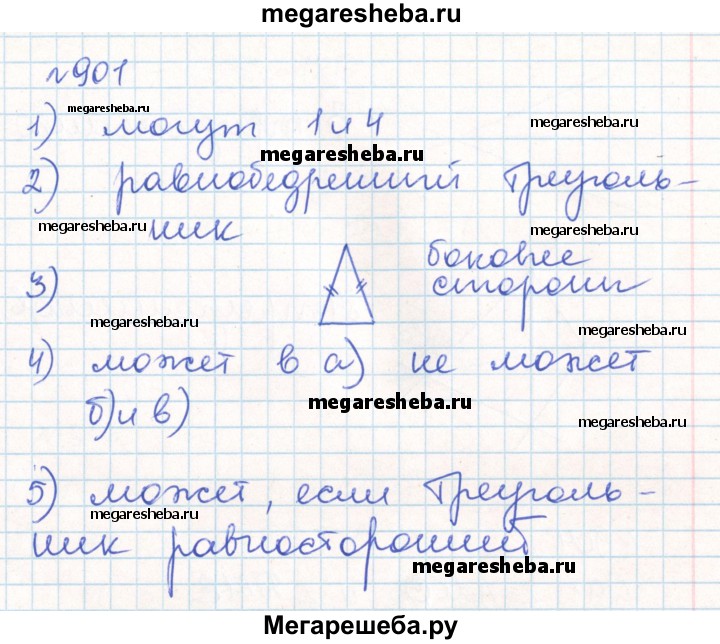 megaresheba.ru
№901
megaresheba.ru
1) могут 1 и 4
megaresheba.ru
megaresheba.ru
2) равнобедренный треуголь-
ник
megaresheba.ru
megaresheba.ru
3) боковые
стороны
megaresheba.ru
megaresheba.ru
4) может в а) не может
б) и в)
megaresheba.ru
megaresheba.ru
5) может, если треуголь-
megaresheba.ru
ник равносторонний
megaresheba.ru
Мегарешеба.ру